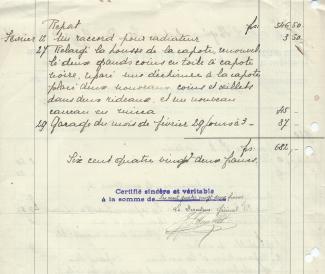 Report frs: 546.50
Février 12 Un raccord pour radiateur 3.50
27 Relargi la housse de la capote, renouvelé
les deux grands coins en toile à capote
noire, réparé une déchirure à la capote
placé deux nouveaux coins et œillets
dans deux rideaux, et un nouveau
carreau en mica
29 Garage du mois de février 29 jours à 3- 87.-
frs: 682.-
Six cent quatre vingt deux francs.
Certifié sincère et véritable
à la somme de six cent quatre vingt deux francs
Le Directeur Général